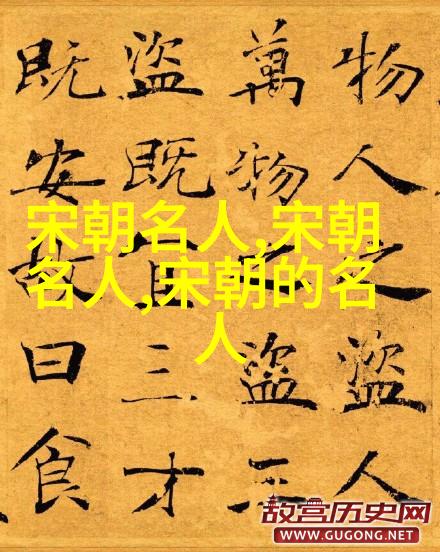 物人之盜人
萬物之盜三
盜既宜三才
既安故曰食
宋朝名人,宋朝
名人,宋朝的名
人
故宫历史网
WWW.GUGONG.NET